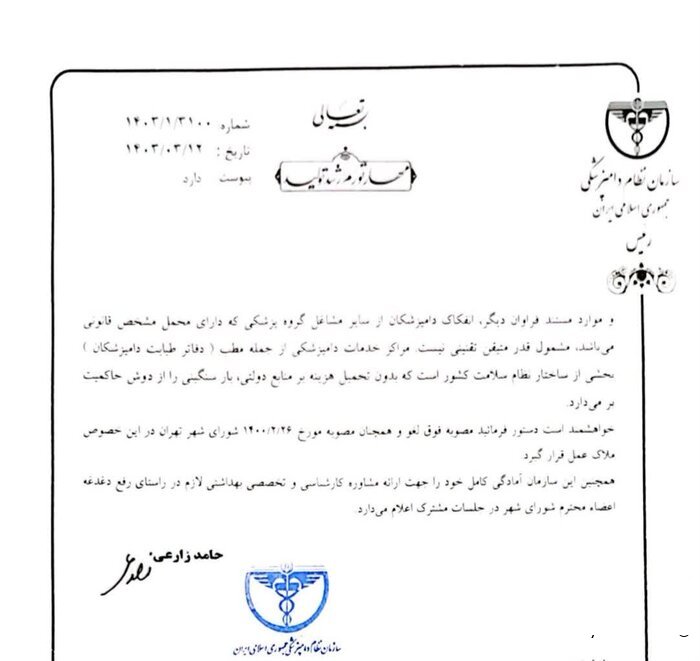 بسمه تعالی
شماره: ۱۴۰۳/۱/۳۱۰۰
تاریخ: ۱۴۰۳/۰۳/۱۲
پیوست دارد
مهار تورم رشد تولید
سازمان نظام دامپزشکی
جمهوری اسلامی ایران
رئیس
و موارد مستند فراوان دیگر، انفکاک دامپزشکان از سایر مشاغل گروه پزشکی که دارای محمل مشخص قانونی
می‌باشد، مشمول قدر متیقن تقنینی نیست. مراکز خدمات دامپزشکی از جمله مطب ( دفاتر طبابت دامپزشکان )
بخشی از ساختار نظام سلامت کشور است که بدون تحمیل هزینه بر منابع دولتی، بار سنگینی را از دوش حاکمیت
بر می‌دارد.
خواهشمند است دستور فرمائید مصوبه فوق لغو و همچنان مصوبه مورخ ۱۴۰۰/۲/۲۶ شورای شهر تهران در این خصوص
ملاک عمل قرار گیرد
همچنین این سازمان آمادگی کامل خود را جهت ارائه مشاوره کارشناسی و تخصصی بهداشتی لازم در راستای رفع دغدغه
اعضاء محترم شورای شهر در جلسات مشترک اعلام می‌دارد.
حامد زارعی
سازمان نظام دامپزشکی جمهوری اسلامی ایران